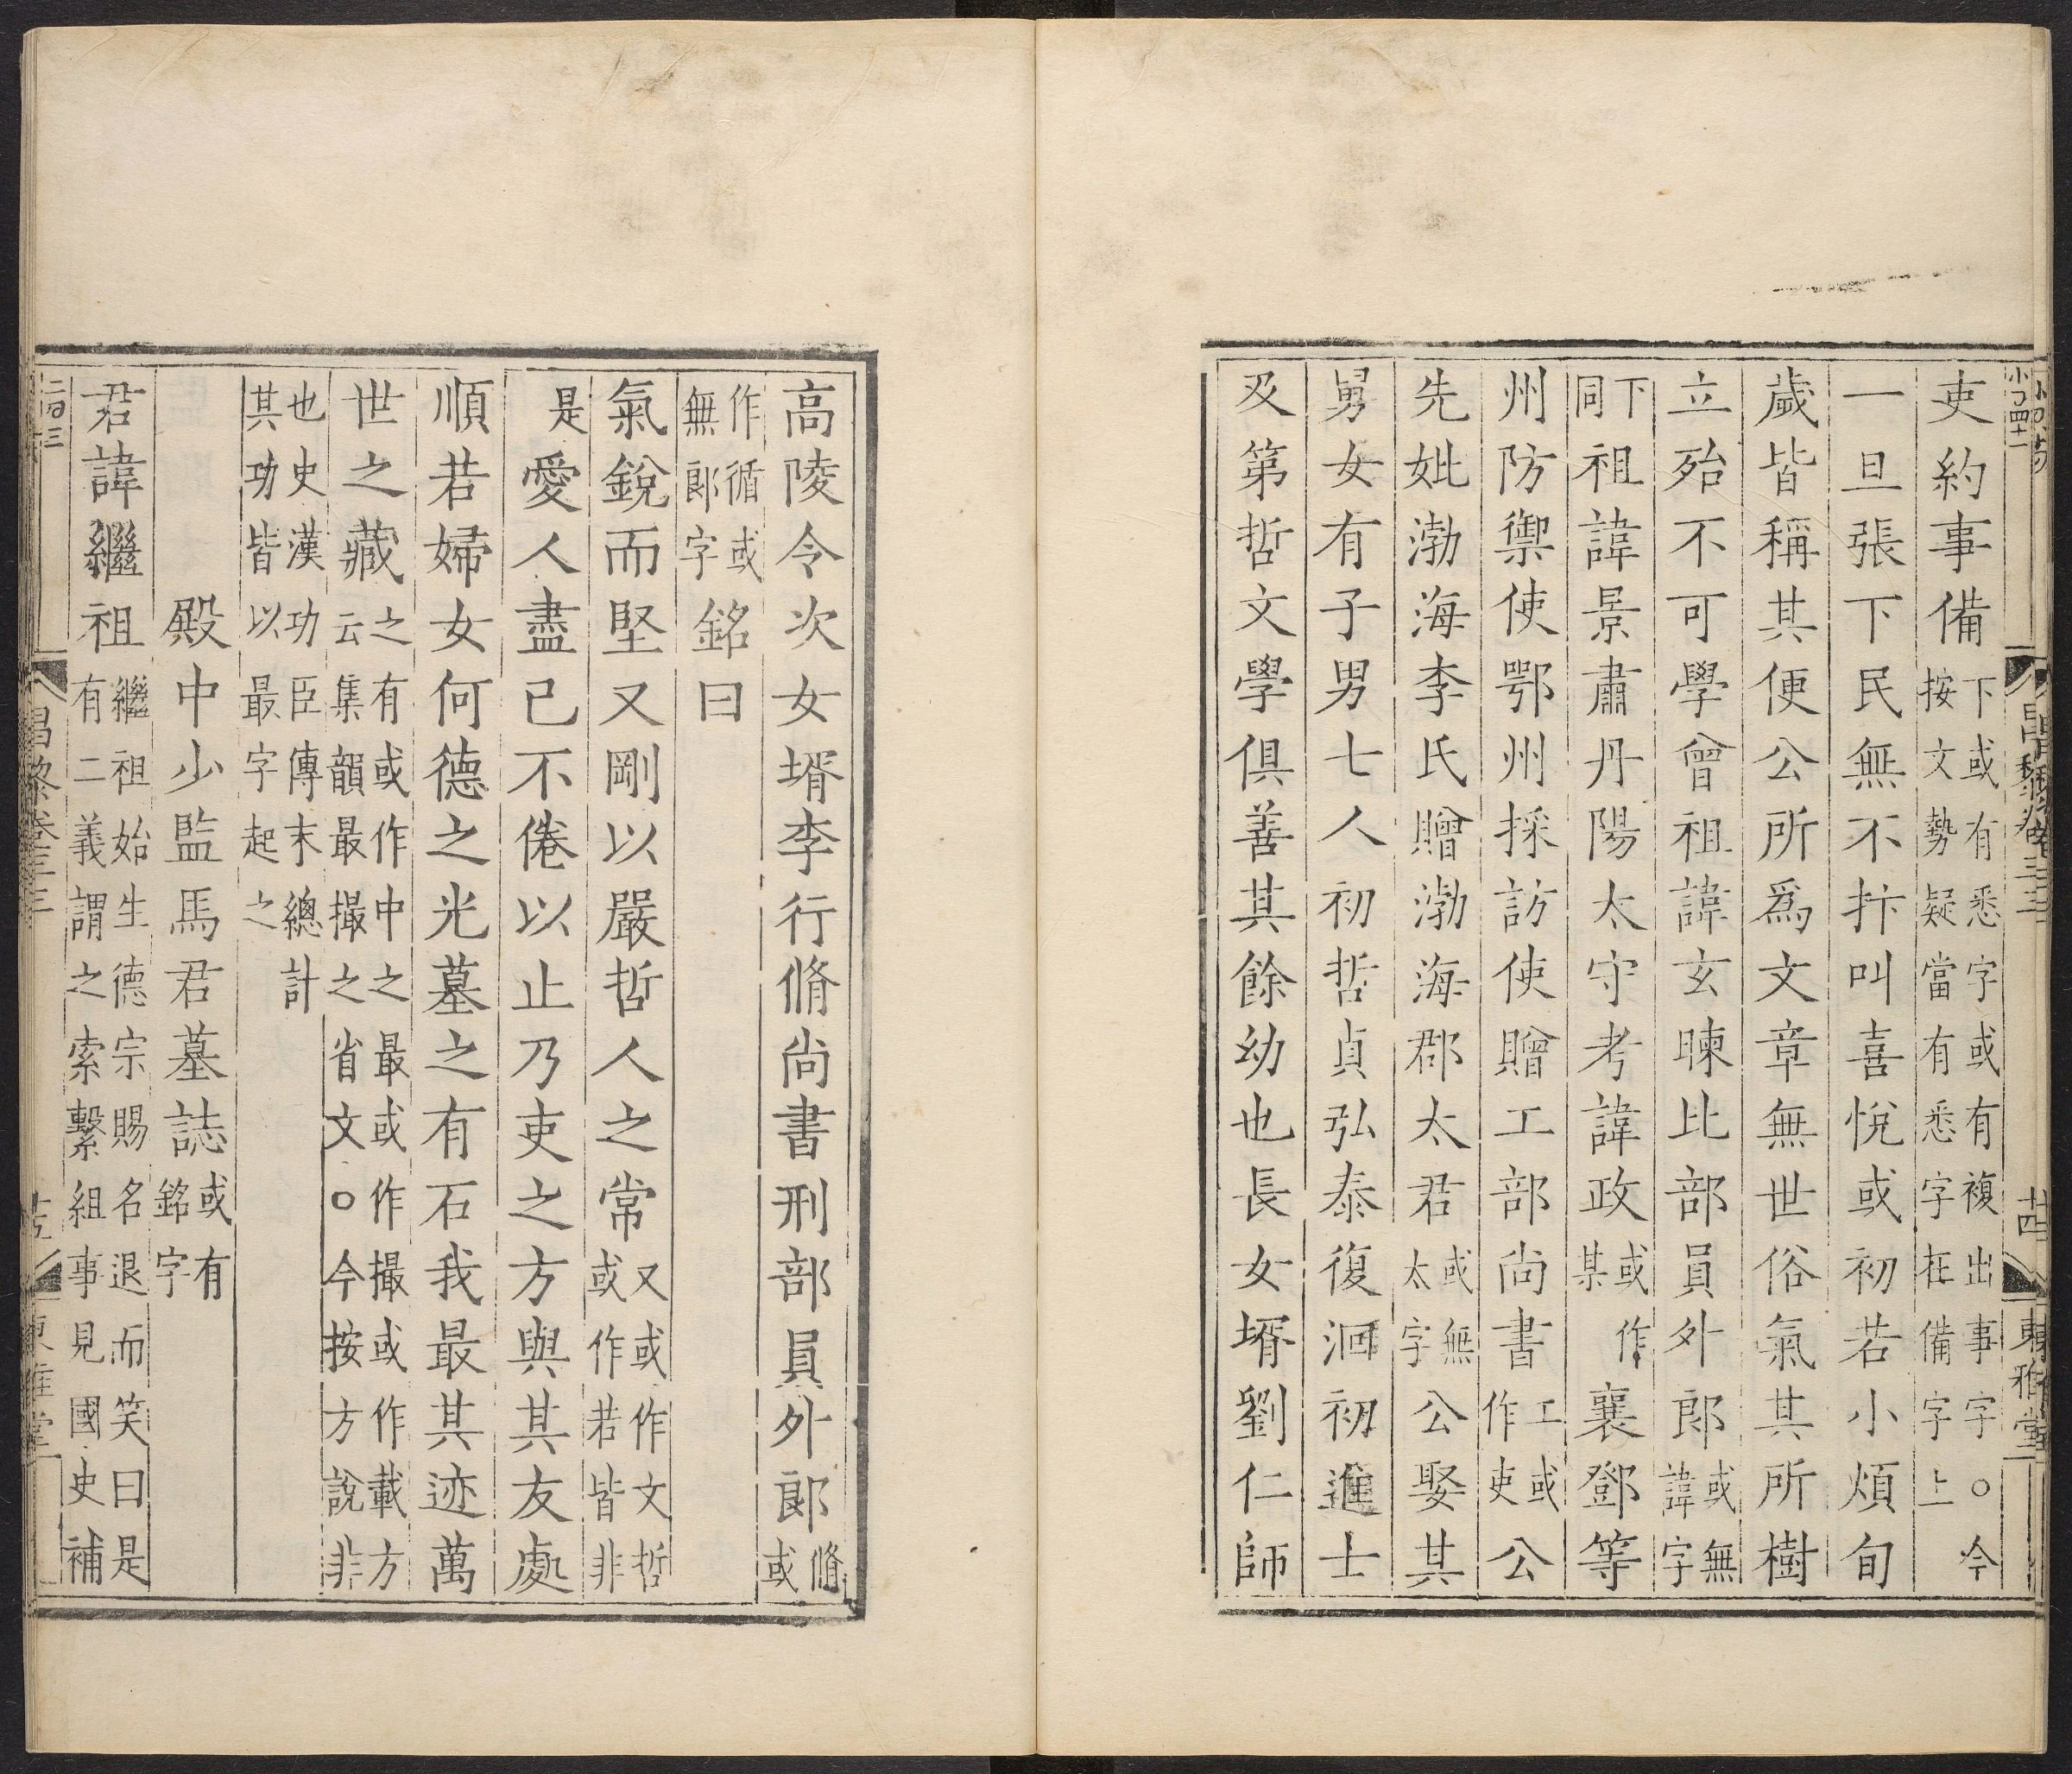 吏約事備下或有悉字或有複出事字〇今按文勢疑當有悉字在備字上
一旦張下民無不抃叫喜悅或初若小煩旬
歲皆稱其便公所爲文章無世俗氣其所樹
立殆不可學曾祖諱玄暕比部員外郎或無諱字
下同祖諱景肅丹陽太守考諱政或作某襄鄧等
州防禦使鄂州採訪使贈工部尚書工或作吏公
先妣渤海李氏贈渤海郡太君或無太字公娶其
舅女有子男七人初哲貞弘泰復洄初進士
及第哲文學俱善其餘幼也長女壻劉仁師
昌黎卷三三
廿四
東雅堂
高陵令次女壻李行脩尚書刑部員外郎脩或
作循或無郎字銘曰
氣銳而堅又剛以嚴哲人之常又或作文哲或作若皆非
是愛人盡已不倦以止乃吏之方與其友處
順若婦女何德之光墓之有石我最其迹萬
世之藏之有或作中之最或作撮或作載方云集韻最撮之省文〇今按方說非
也史漢功臣傳末總計其功皆以最字起之
殿中少監馬君墓誌或有銘字
君諱繼祖繼祖始生德宗賜名退而笑曰是有二義謂之索繫組事見國史補
昌黎卷三三
廿五
東雅堂